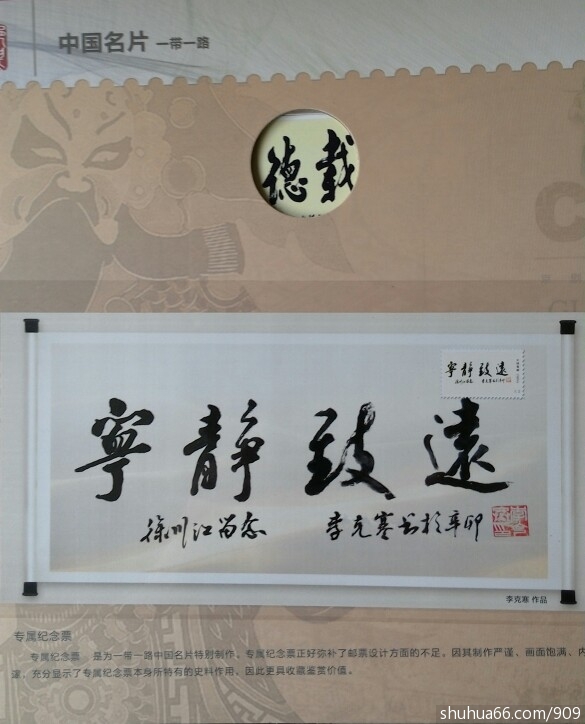 中国名片 一带一路
德载
寧静致遠
寧静致遠
徐川江留念 李克寒书於辛卯
李克寒 作品
专属纪念票
专属纪念票 是为一带一路中国名片特别制作。专属纪念票正好弥补了邮票设计方面的不足。因其制作严谨、画面饱满、内
涵、充分显示了专属纪念票本身所特有的史料作用、因此更具收藏鉴赏价值。
shuhua66.com/909